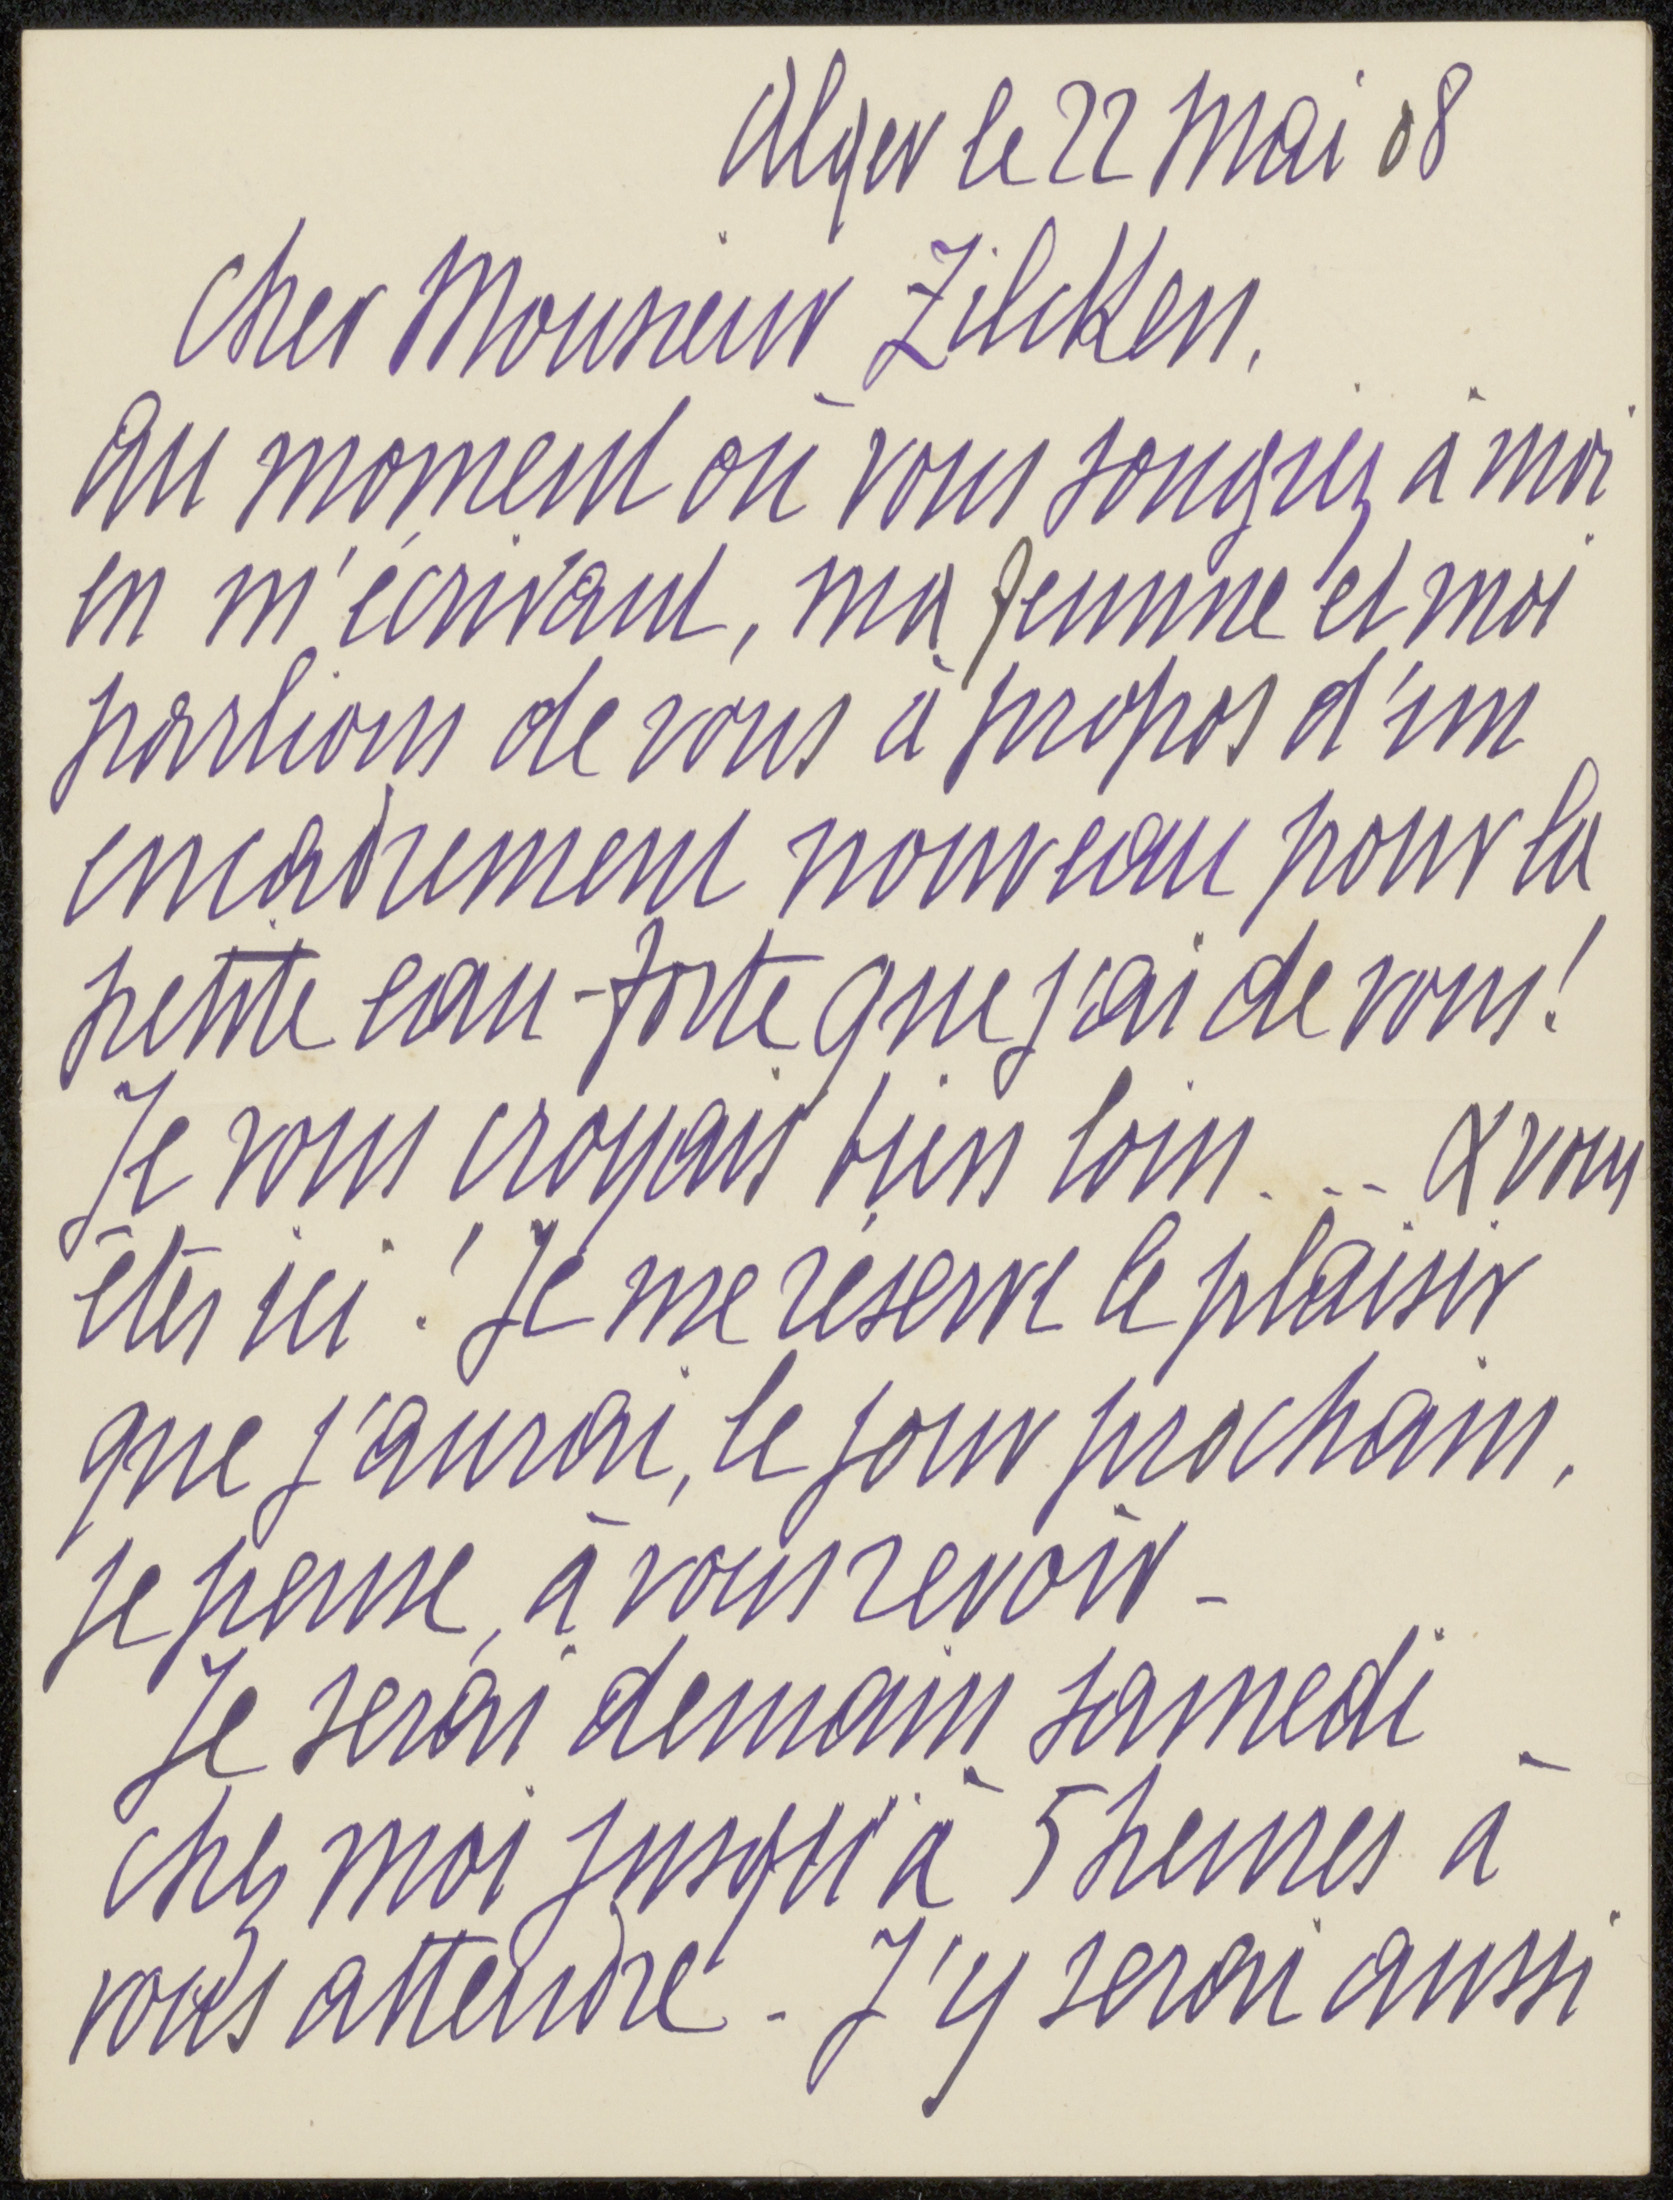 Alger le 22 Mai 08
Cher Monsieur Zilcken,
Au moment où vous songiez à moi
en m'écrivant, ma femme et moi
parlions de vous à propos d'un
encadrement nouveau pour la
petite eau-forte que j'ai de vous!
Je vous croyais bien loin... & vous
êtes ici! Je me réserve le plaisir
que j'aurai, le jour prochain,
je pense, à vous revoir -
Je serai demain samedi
chez moi jusqu'à 5 heures à
vous attendre - J'y serai aussi